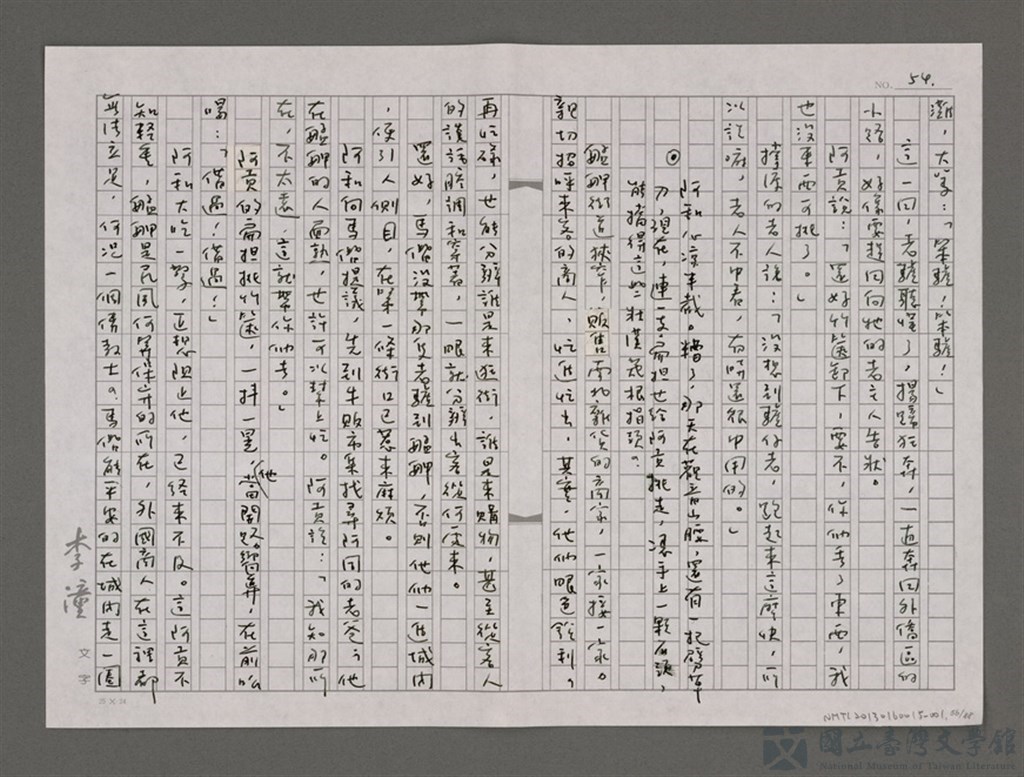 NO. 54.
灘，大笑：「笨驢！笨驢！」
這一回，老驢聽懂了，揚蹄狂奔，一直奔回外僑區的
小路，好像要趕回向牠的老主人告狀。
阿貢說：「還好竹簍卸下，要不，你們丟了東西，我
也沒東西可挑了。」
撐渡的老人說：「沒想到驢仔老，跑起來這麼快，所
以說嘛，老人不中看，有時還很中用的。」
◎
阿和心涼半截。糟了，那天在觀音山腰，還有一把劈草
刀，現在，連一支扁担也給阿貢挑走，憑手上一顆石頭，
能擋得這些壯漢幾根指頭？
艋舺街道狹窄，販售南北雜貨的商家，一家接一家。
親切招呼來客的商人，忙進忙出，其實，他們眼色銳利，
再忙碌，也能分辨誰是來逛街，誰是來購物，甚至從客人
的談話腔調和穿著，一眼就分辨出客從何處來。
還好，馬偕沒帶那隻老驢到艋舺，否則他們一進城內
，便引人側目，在第一條街口已惹來麻煩。
阿和向馬偕提議，先到牛販市集找尋阿同的老爸，他
在艋舺的人面熟，也許可以幫上忙。阿貢說：「我知那所
在，不太遠，這就帶你們去。」
阿貢的扁担挑竹簍，一抖一晃，他當開路嚮導，在前吆
喝：「借過！借過！」
阿和大吃一驚，正想阻止他，已經來不及。這阿貢不
知輕重，艋舺是民風何等保守的所在，外國商人在這裡都
無法立足，何況一個傳教士。馬偕能平安的在城內走一圈
李潼
文字
25×24
NMTL20130160015-001. 56/68
國立臺灣文學館
National Museum of Taiwan Literature